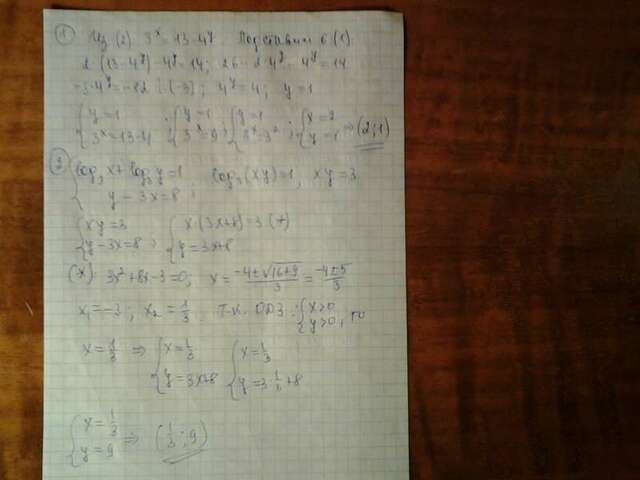 ① Из (2) 3^x = 13 - 4^y. Подставим в (1)
2(13 - 4^y) - 4^y = 14; 26 - 2·4^y - 4^y = 14
-3·4^y = -12 | :(-3); 4^y = 4; y = 1
{y = 1 3^x = 13 - 4; {y = 1 3^x = 9; {y = 1 3^x = 3^2; {x = 2 y = 1 ⇒ (2; 1)
② {log₃ x + log₃ y = 1 y - 3x = 8; log₃ (xy) = 1, xy = 3
{xy = 3 y - 3x = 8; {x·(3x+8) = 3 (*) y = 3x+8
(*) 3x² + 8x - 3 = 0; x = (-4 ± √(16+9))/3 = (-4 ± 5)/3
x₁ = -3; x₂ = 1/3. Т.к. ОДЗ: {x>0 y>0, то
x = 1/3 ⇒ {x = 1/3 y = 3x+8 {x = 1/3 y = 3·1/3 + 8
{x = 1/3 y = 9 ⇒ (1/3; 9)